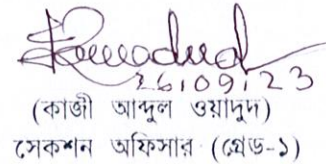 26.09.23
(কাজী আব্দুল ওয়াদুদ)
সেকশন অফিসার (গ্রেড-১)